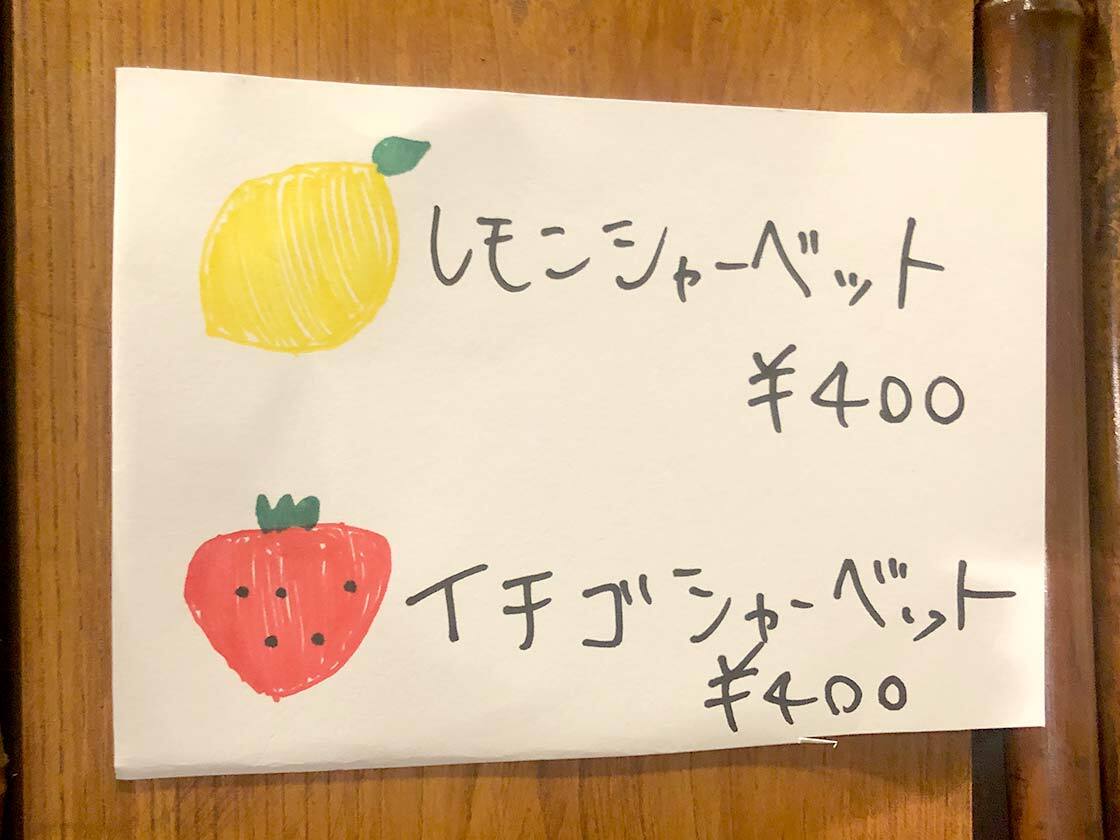 レモンシャーベット
¥400
イチゴシャーベット
¥400